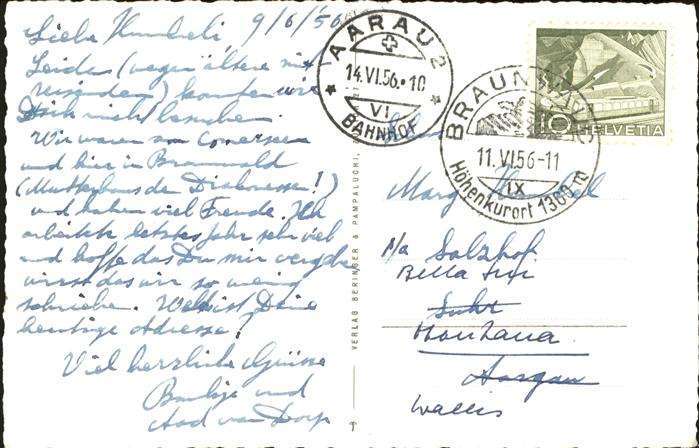 9/6/56
Liebe Humbeli
Leider (wegen ältere mit
reisenden) konnten wir
Dich nicht besuchen.
Wir waren am Comersee
und hier in Braunwald
(Mutterhaus der Diakonessen!)
und haben viel Freude. Ich
arbeitete letztes Jahr sehr viel
und hoffe das Du mir vergebe
wirst das wir so wenig
schrieben. Welch ist Deine
heutige Adresse?
Viel herzliche Grüsse
und
Aad van Dorp
VERLAG BERINGER & PAMPALUCHI,
AARAU 2
14.VI.56.-10
VI
BAHNHOF
BRAUNWALD
11.VI.56-11
IX
Höhenkurort 1300 m
10 HELVETIA
Salzhof
Bella
Suhr
Montana
Aargau
Wallis